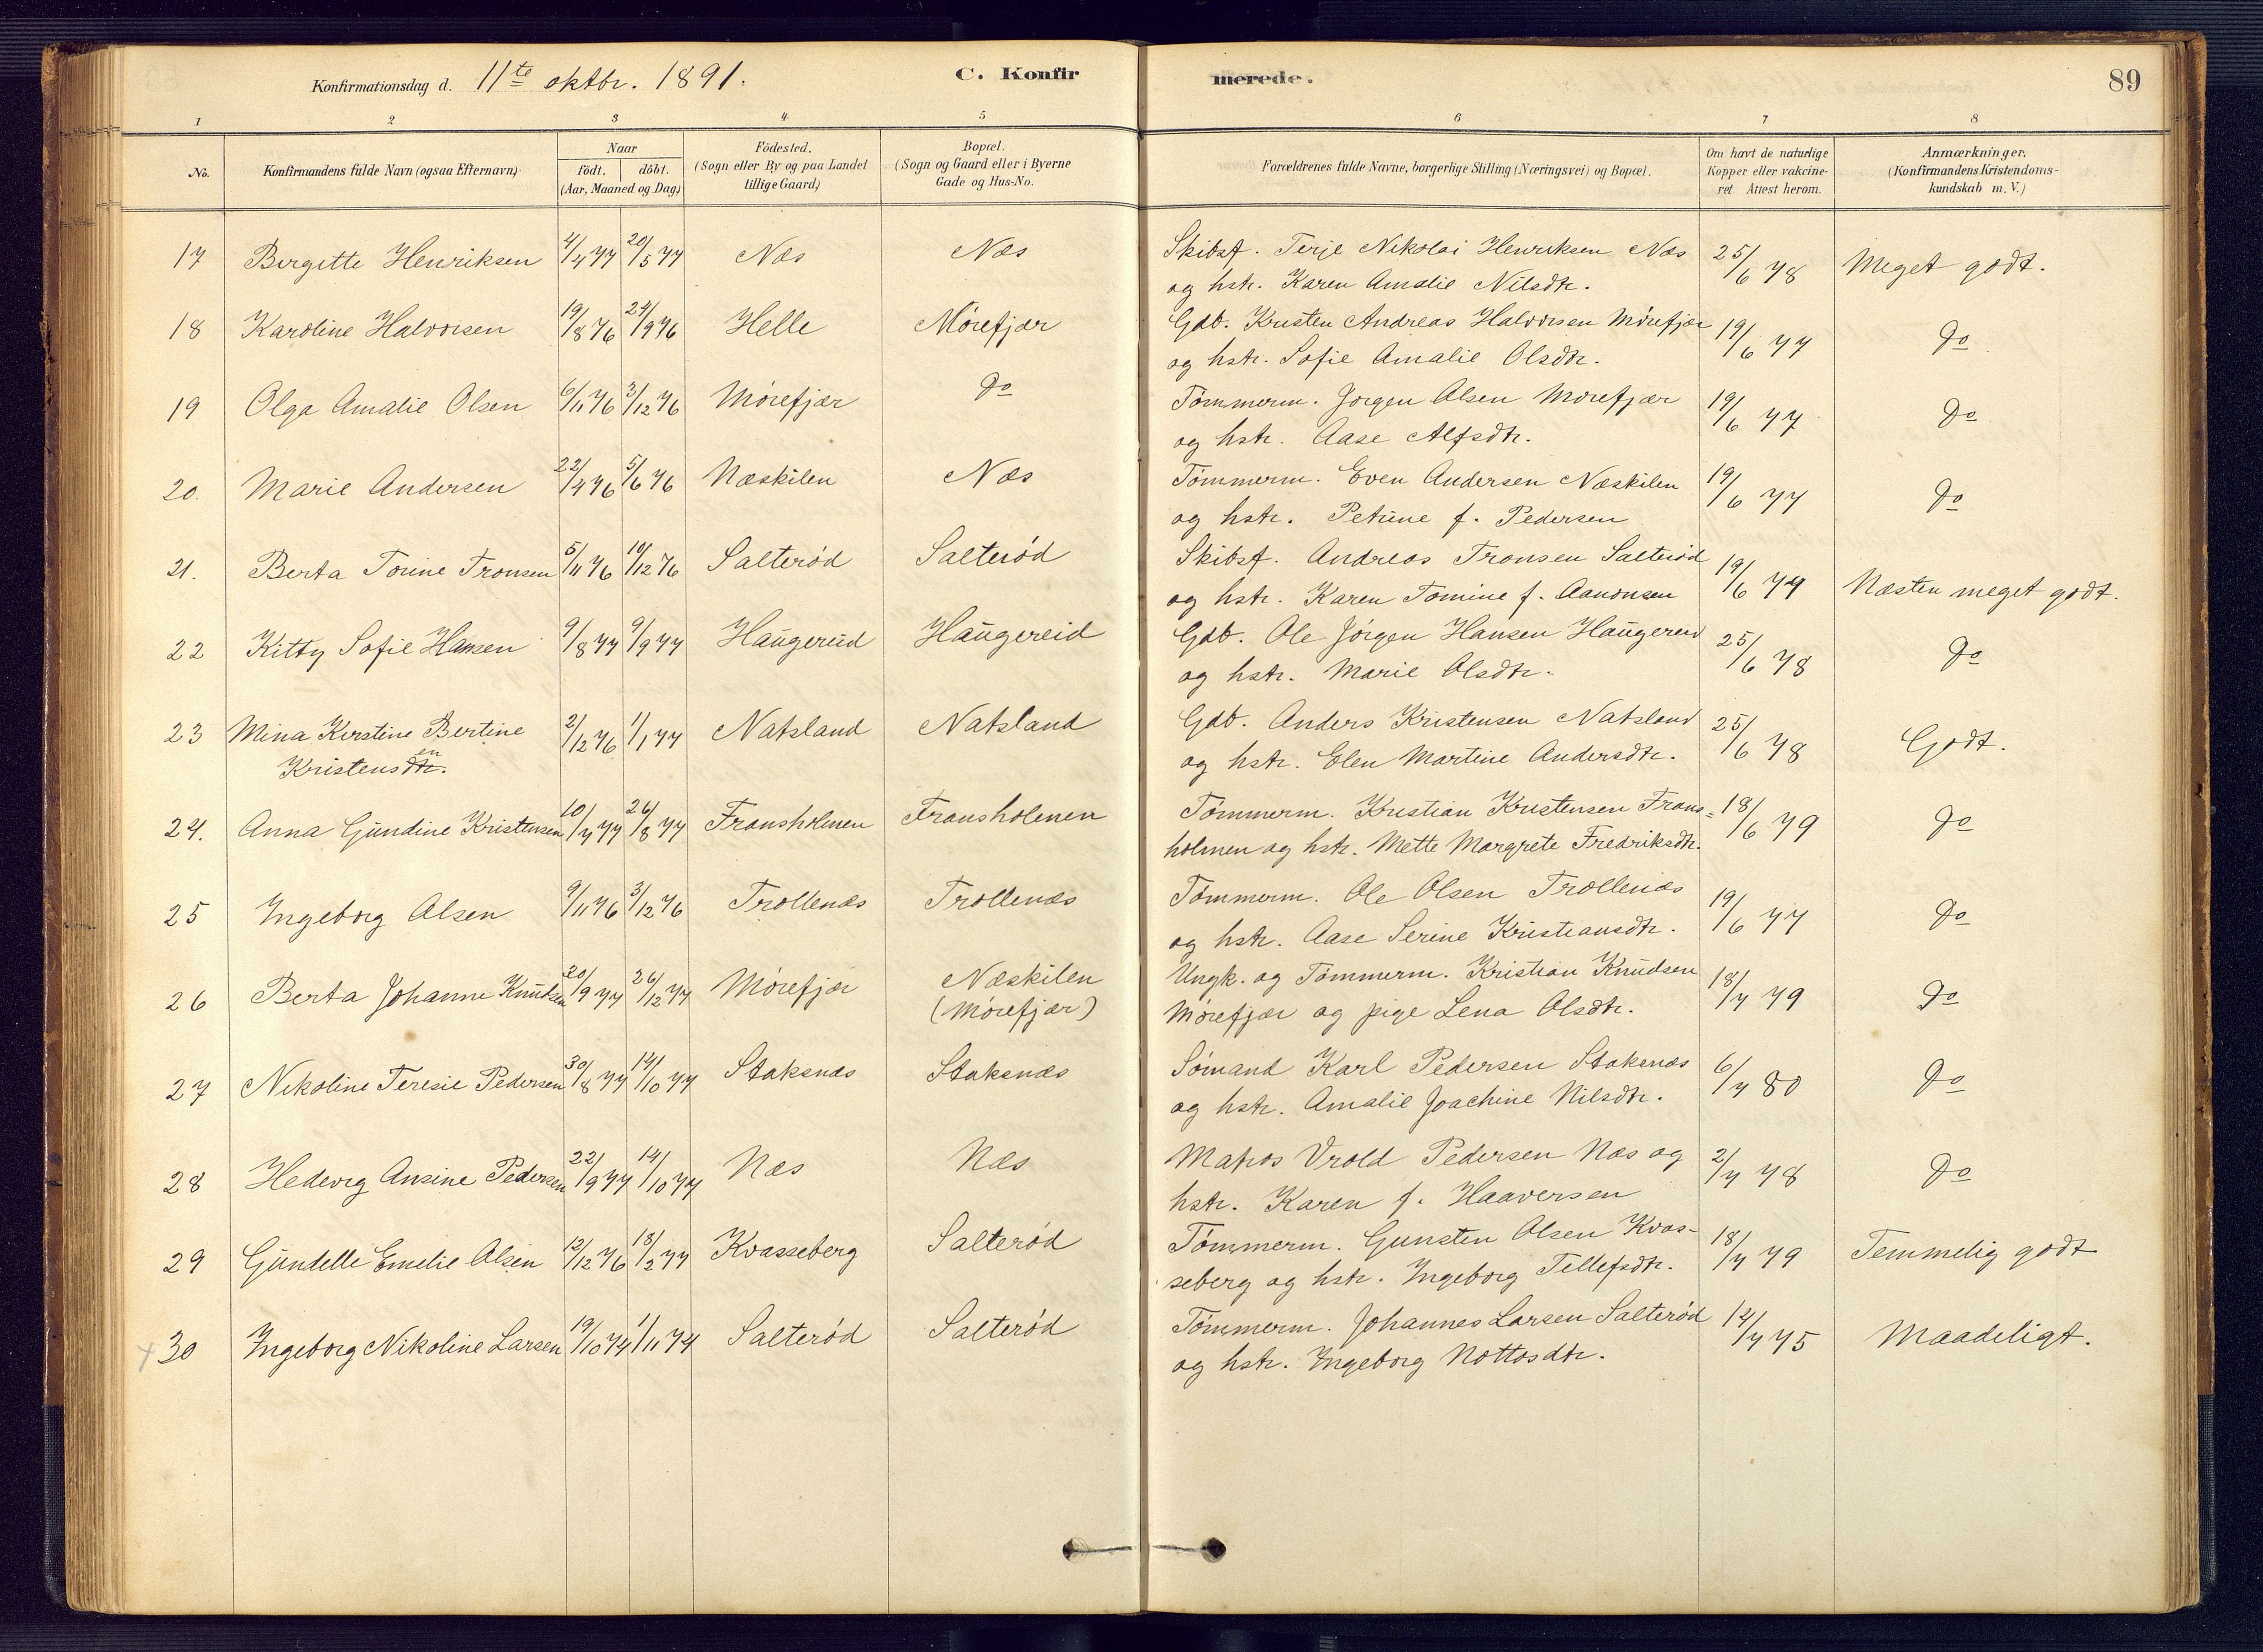 Konfirmationsdag d. 11te oktbr. 1891. C. Konfir merede. 89
1 2 3 4 5 6 7 8
No. Konfirmandens fulde Navn (ogsaa Efternavn). Naar födt. döbt. (Aar, Maaned og Dag) Födested. (Sogn eller By og paa Landet tillige Gaard) Bopæl. (Sogn og Gaard eller i Byerne Gade og Hus-No. Forældrenes fulde Navne, borgerlige Stilling (Næringsvei) og Bopæl. Om havt de naturlige Kopper eller vakcineret Attest herom. Anmærkninger. (Konfirmandens Kristendomskundskab m. V.)
17 Birgitte Henriksen 4/4 77 20/5 77 Næs Næs Skibsf. Terje Nikolai Henriksen Næs 25/6 78 Meget godt.
og hstr. Karen Amalie Nilsdtr.
18 Karoline Halvorsen 19/8 76 24/9 76 Helle Mórefjær Gdb. Kristen Andreas Halvorsen Mórefjær 19/6 77 do
og hstr. Sofie Amalie Olsdtr.
19 Olga Amalie Olsen 6/11 76 3/12 76 Mórefjær do Tómmerm. Jørgen Olsen Mórefjær 19/6 77 do
og hstr. Aase Alfsdtr.
20. Marie Andersen 22/4 76 5/6 76 Næskilen Næs Tómmerm. Even Andersen Næskilen 19/6 77 do
og hstr. Petrine f. Pedersen
21. Berta Torine Tronsen 5/11 76 10/12 76 Salteród Salteród Skibsf. Andreas Tronsen Salteród 19/6 77 Næsten meget godt.
og hstr. Karen Tomine f. Aanonsen
22 Kitty Sofie Hansen 9/8 77 9/9 77 Haugereid Haugereid Gdb. Ole Jórgen Hansen Haugereid 25/6 78 do
og hstr. Marie Olsdtr.
23 Mina Kirstine Bertine 2/12 76 1/1 77 Natsland Natsland Gdb. Anders Kristensen Natsland 25/6 78 Godt.
Kristensdtr. en og hstr. Elen Martine Andersdtr.
24. Anna Gundine Kristensen 10/7 77 26/8 77 Fransholmen Fransholmen Tómmerm. Kristian Kristensen Frans= 18/6 79 do
holmen og hstr. Mette Margrete Fredriksdtr.
25 Ingeborg Olsen 9/11 76 3/12 76 Trollenæs Trollenæs Tómmerm. Ole Olsen Trollenæs 19/6 77 do
og hstr. Aase Serine Kristiansdtr.
26 Berta Johanne Knutsen 20/9 77 26/12 77 Mórefjær Næskilen Ungk. og Tómmerm. Kristian Knudsen 18/7 79 do
(Mórefjær) Mórefjær og pige Lena Olsdtr.
27 Nikoline Teresie Pedersen 30/8 77 14/10 77 Staksnæs Staksnæs Sómand Karl Pedersen Staksnæs 6/7 80 do
og hstr. Amalie Joachine Nilsdtr.
28 Hedevig Ansine Pedersen 22/9 77 14/10 77 Næs Næs Matros Vrold Pedersen Næs og 2/7 78 do
hstr. Karen f. Haaversen
29 Gundelle Emelie Olsen 12/12 76 18/2 77 Kvasseberg Salteród Tómmerm. Gunsten Olsen Kvas- 18/7 79 Temmelig godt
seberg og hstr. Ingeborg Tellefsdtr.
+ 30 Ingeborg Nikoline Larsen 19/10 74 1/11 74 Salteród Salteród Tómmerm. Johannes Larsen Salteród 12/7 75 Maadeligt.
og hstr. Ingeborg Nottosdtr.